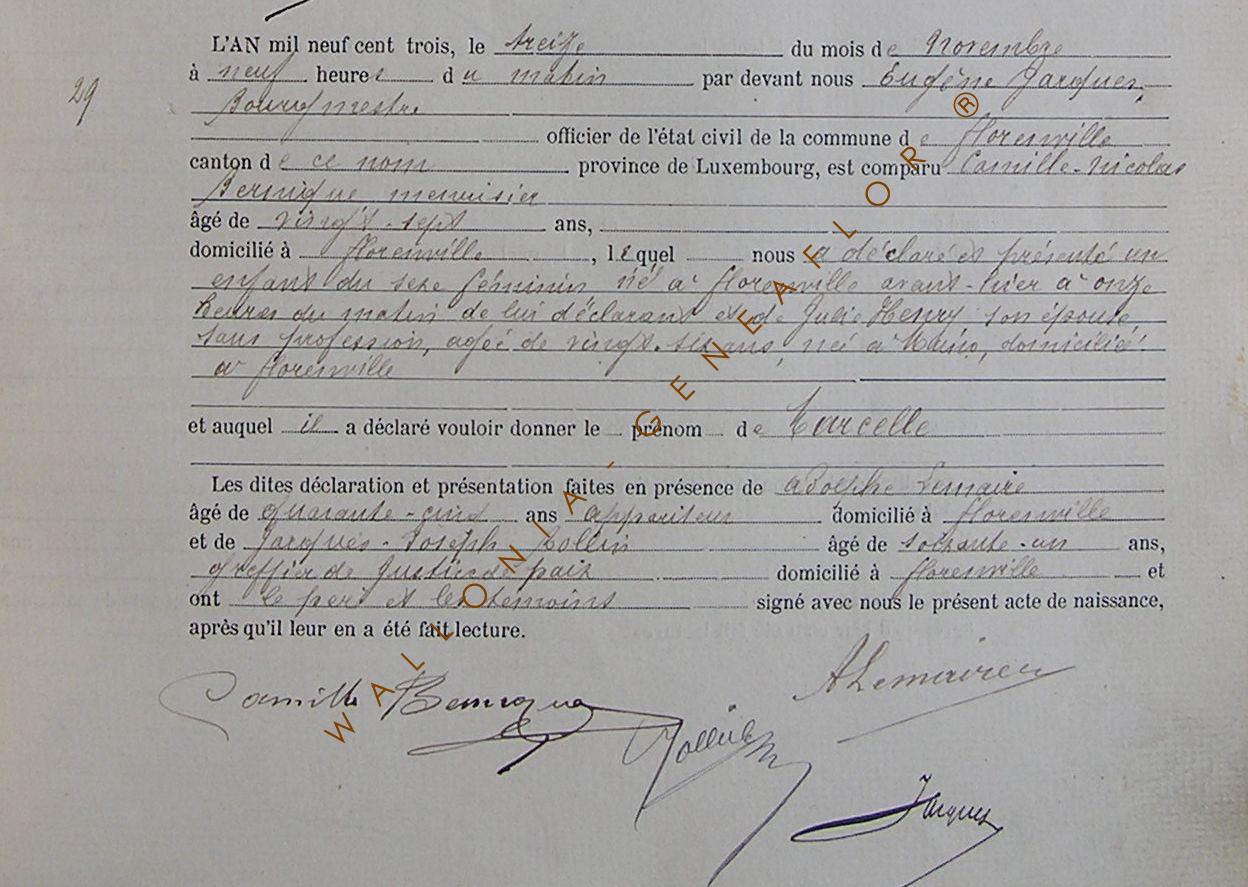 L'AN mil neuf cent trois, le treize du mois de Novembre
29
à neuf heures du matin par devant nous Eugène Jacques,
Bourgmestre
officier de l'état civil de la commune de Florenville
canton de ce nom province de Luxembourg, est comparu Camille-Nicolas
Bernique menuisier
âgé de vingt-sept ans,
domicilié à Florenville, lequel nous a déclaré et présenté un
enfant du sexe féminin né à Florenville avant-hier à onze
heures du matin de lui déclarant et de Julie Henry son épouse,
sans profession, agée de vingt-six ans, née à domiciliée
à Florenville
et auquel il a déclaré vouloir donner le prénom de Marcelle
Les dites déclaration et présentation faites en présence de Adolphe Lemaire
âgé de quarante-cinq ans appariteur domicilié à Florenville
et de Jacques-Joseph Rollin âgé de soixante-un ans,
greffier de Justice de paix domicilié à Florenville et
ont le père et les témoins signé avec nous le présent acte de naissance,
après qu'il leur en a été fait lecture.
Camille Bernique
ALemaire
Rollin
Jacques
WALLONIA-GENEAFLOR®